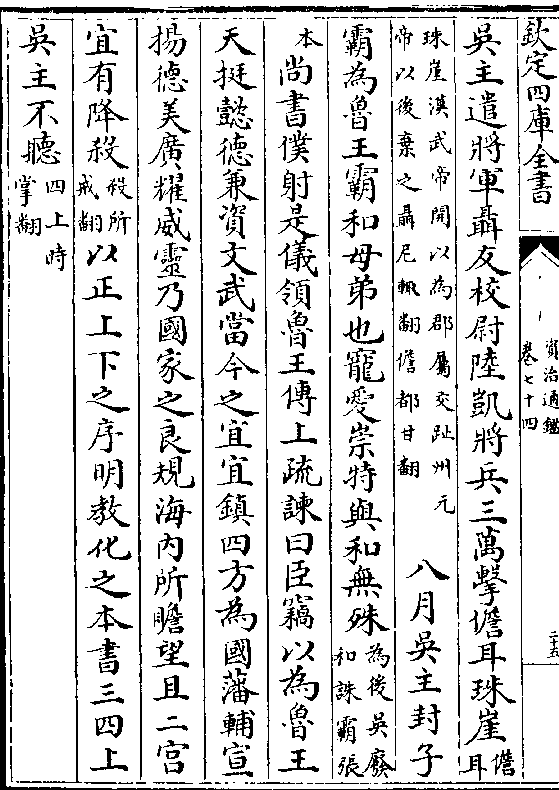 欽定四庫全書
資治通鑑
卷七十四
二十五
吳主遣將軍聶友校尉陸凱將兵三萬擊儋耳珠崖儋耳
珠崖漢武帝開以為郡屬交趾州元帝以後棄之聶尼輒翻儋都甘翻八月吳主封子
霸為魯王霸和母弟也寵愛崇特與和無殊為後吳廢和誅霸張
本尚書僕射是儀領魯王傅上疏諫曰臣竊以為魯王
天挺懿德兼資文武當今之宜宜鎮四方為國藩輔宣
揚德美廣耀威靈乃國家之良規海內所瞻望且二宫
宜有降殺殺所戒翻以正上下之序明教化之本書三四上
吳主不聽四上時掌翻